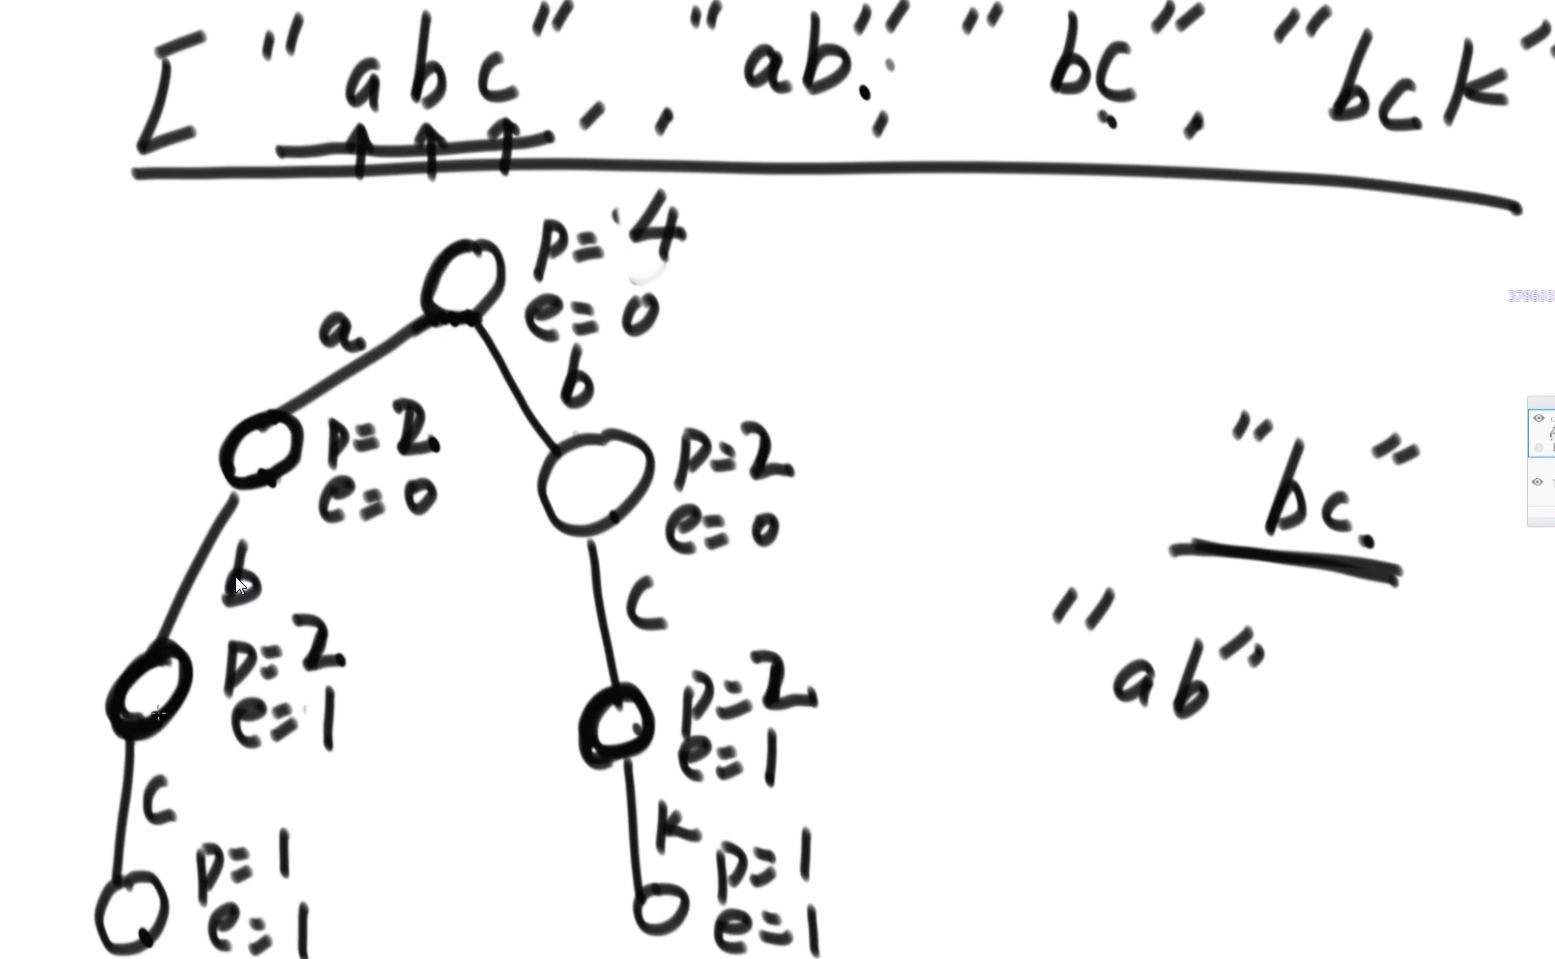 ["abc", , "ab", "bc", "bck"
p=4
e=0
a
b
p=2
e=0
p=2
e=0
"bc"
b
c
"ab"
p=2
e=1
p=2
e=1
c
k
p=1
e=1
p=1
e=1